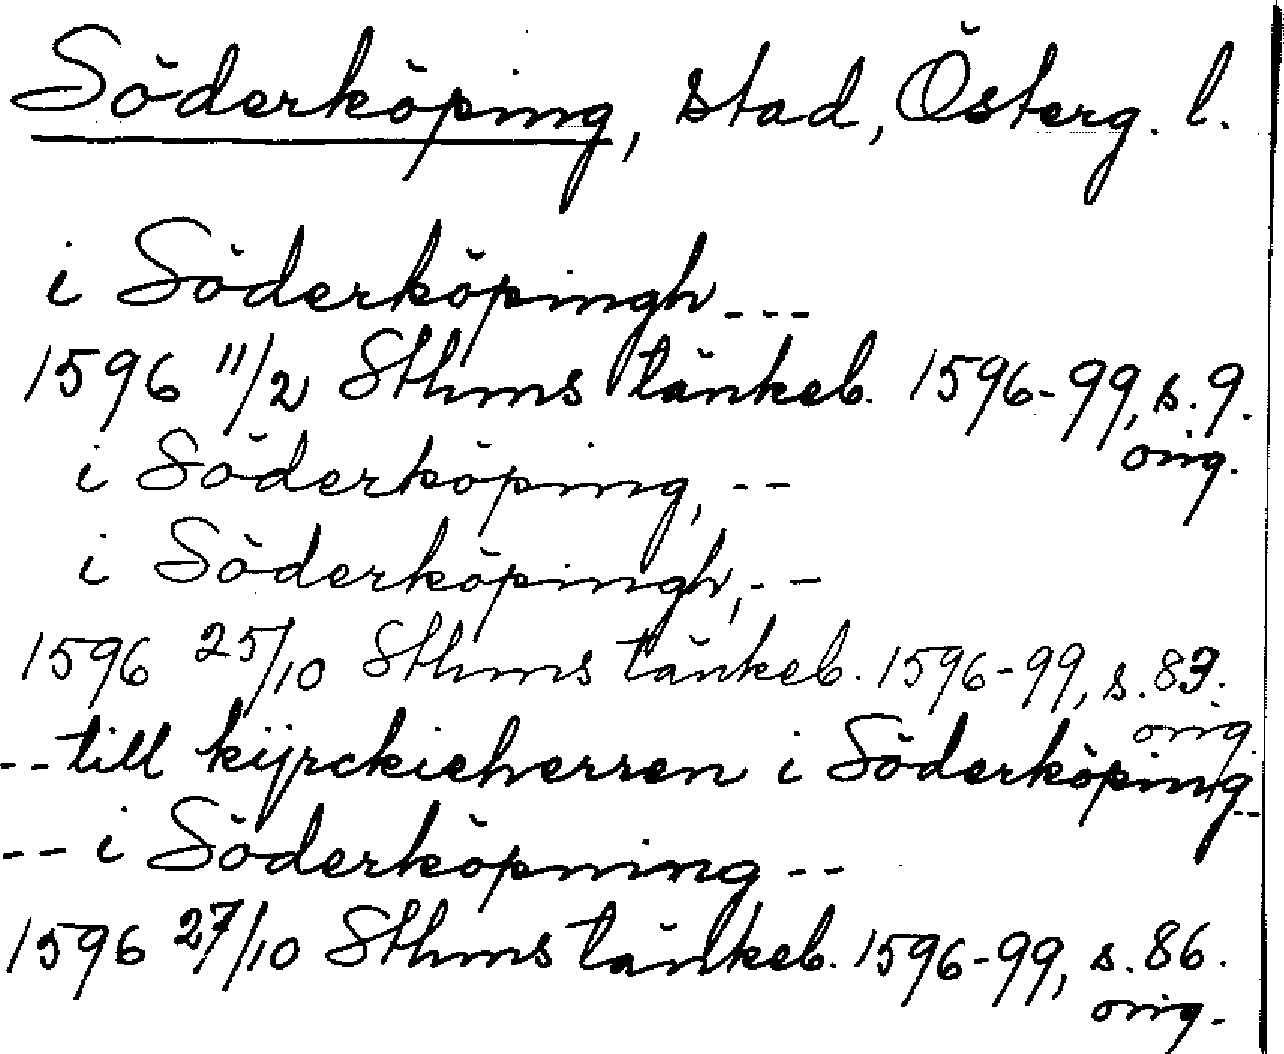 Söderköping, stad, Österg. l.
i Söderköpingh ---
1596 11/2 Sthms tänkeb. 1596-99, s. 9.
orig.
i Söderköping, --
i Söderköpingh, --
1596 25/10 Sthms tänkeb. 1596-99, s. 83.
orig.
-- till kijrckieherren i Söderköping --
-- i Söderköpning --
1596 27/10 Sthms tänkeb. 1596-99, s. 86.
orig.